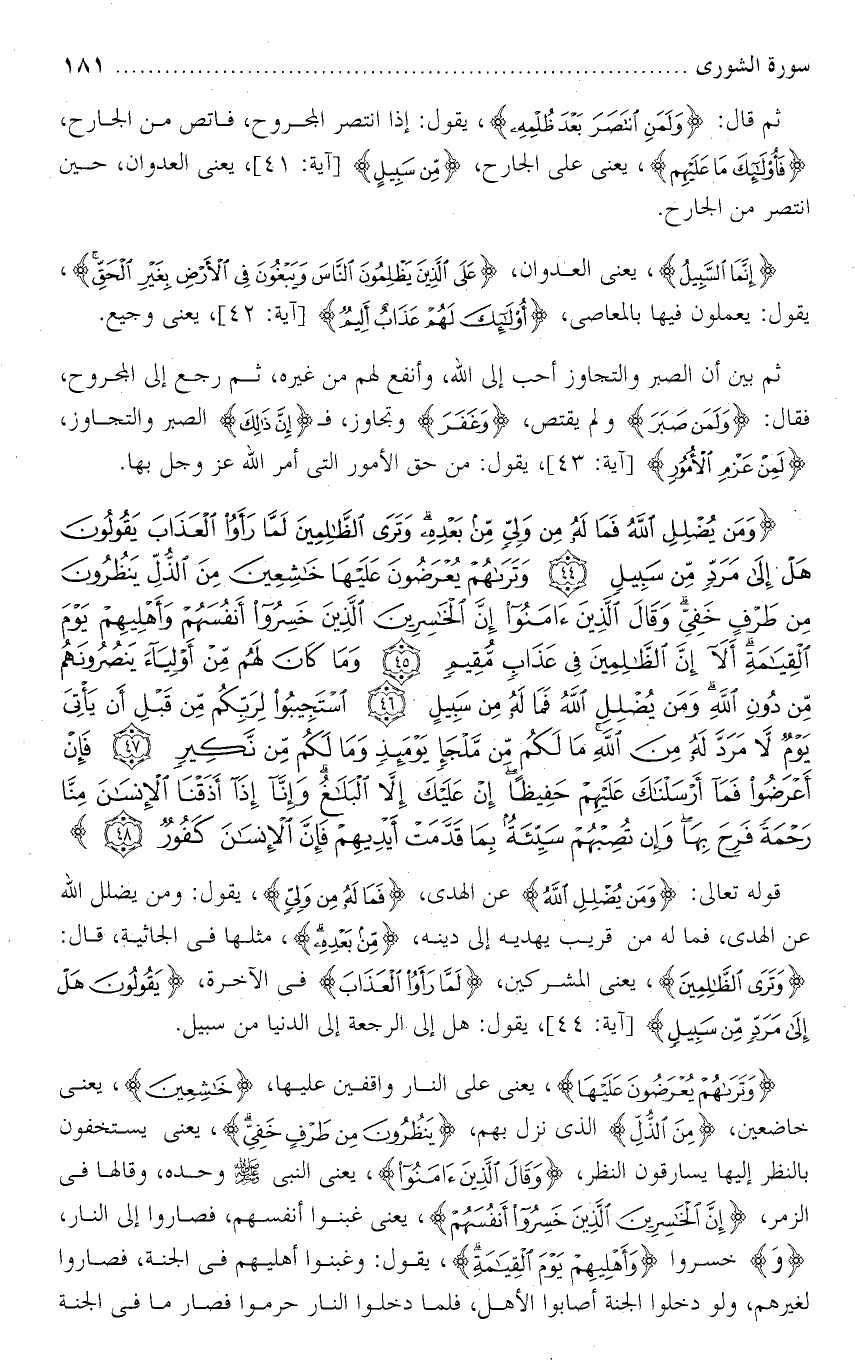 سورة الشورى ........................................................................ ١٨١
ثم قال: ﴿وَلَمَنِ ٱنتَصَرَ بَعْدَ ظُلْمِهِۦ﴾، يقول: إذا انتصر المجروح، فاتص من الجارح،
﴿فَأُوْلَٰٓئِكَ مَا عَلَيْهِم﴾، يعنى على الجارح، ﴿مِّن سَبِيلٍ﴾ [آية: ٤١]، يعنى العدوان، حين
انتصر من الجارح.
﴿إِنَّمَا ٱلسَّبِيلُ﴾، يعنى العدوان، ﴿عَلَى ٱلَّذِينَ يَظْلِمُونَ ٱلنَّاسَ وَيَبْغُونَ فِى ٱلْأَرْضِ بِغَيْرِ ٱلْحَقِّ﴾،
يقول: يعملون فيها بالمعاصى، ﴿أُوْلَٰٓئِكَ لَهُمْ عَذَابٌ أَلِيمٌ﴾ [آية: ٤٢]، يعنى وجيع.
ثم بين أن الصبر والتجاوز أحب إلى الله، وأنفع لهم من غيره، ثم رجع إلى المجروح،
فقال: ﴿وَلَمَن صَبَرَ﴾ ولم يقتص، ﴿وَغَفَرَ﴾ وتجاوز، فـ﴿إِنَّ ذَٰلِكَ﴾ الصبر والتجاوز،
﴿لَمِنْ عَزْمِ ٱلْأُمُورِ﴾ [آية: ٤٣]، يقول: من حق الأمور التى أمر الله عز وجل بها.
﴿وَمَن يُضْلِلِ ٱللَّهُ فَمَا لَهُۥ مِن وَلِىٍّ مِّنۢ بَعْدِهِۦۗ وَتَرَى ٱلظَّٰلِمِينَ لَمَّا رَأَوُاْ ٱلْعَذَابَ يَقُولُونَ
هَلْ إِلَىٰ مَرَدٍّ مِّن سَبِيلٍ ٤٤ وَتَرَىٰهُمْ يُعْرَضُونَ عَلَيْهَا خَٰشِعِينَ مِنَ ٱلذُّلِّ يَنظُرُونَ
مِن طَرْفٍ خَفِىٍّۗ وَقَالَ ٱلَّذِينَ ءَامَنُوٓاْ إِنَّ ٱلْخَٰسِرِينَ ٱلَّذِينَ خَسِرُوٓاْ أَنفُسَهُمْ وَأَهْلِيهِمْ يَوْمَ
ٱلْقِيَٰمَةِۗ أَلَآ إِنَّ ٱلظَّٰلِمِينَ فِى عَذَابٍ مُّقِيمٍ ٤٥ وَمَا كَانَ لَهُم مِّنْ أَوْلِيَآءَ يَنصُرُونَهُم
مِّن دُونِ ٱللَّهِۗ وَمَن يُضْلِلِ ٱللَّهُ فَمَا لَهُۥ مِن سَبِيلٍ ٤٦ ٱسْتَجِيبُواْ لِرَبِّكُم مِّن قَبْلِ أَن يَأْتِىَ
يَوْمٌ لَّا مَرَدَّ لَهُۥ مِنَ ٱللَّهِۚ مَا لَكُم مِّن مَّلْجَإٍ يَوْمَئِذٍ وَمَا لَكُم مِّن نَّكِيرٍ ٤٧ فَإِنْ
أَعْرَضُواْ فَمَآ أَرْسَلْنَٰكَ عَلَيْهِمْ حَفِيظًاۖ إِنْ عَلَيْكَ إِلَّا ٱلْبَلَٰغُۗ وَإِنَّآ إِذَآ أَذَقْنَا ٱلْإِنسَٰنَ مِنَّا
رَحْمَةً فَرِحَ بِهَاۖ وَإِن تُصِبْهُمْ سَيِّئَةٌۢ بِمَا قَدَّمَتْ أَيْدِيهِمْ فَإِنَّ ٱلْإِنسَٰنَ كَفُورٌ ٤٨ ﴾
قوله تعالى: ﴿وَمَن يُضْلِلِ ٱللَّهُ﴾ عن الهدى، ﴿فَمَا لَهُۥ مِن وَلِىٍّ﴾، يقول: ومن يضلل الله
عن الهدى، فما له من قريب يهديه إلى دينه، ﴿مِّنۢ بَعْدِهِۦۗ﴾، مثلها فى الجاثية، قال:
﴿وَتَرَى ٱلظَّٰلِمِينَ﴾، يعنى المشركين، ﴿لَمَّا رَأَوُاْ ٱلْعَذَابَ﴾ فى الآخرة، ﴿يَقُولُونَ هَلْ
إِلَىٰ مَرَدٍّ مِّن سَبِيلٍ﴾ [آية: ٤٤]، يقول: هل إلى الرجعة إلى الدنيا من سبيل.
﴿وَتَرَىٰهُمْ يُعْرَضُونَ عَلَيْهَا﴾، يعنى على النار واقفين عليها، ﴿خَٰشِعِينَ﴾، يعنى
خاضعين، ﴿مِنَ ٱلذُّلِّ﴾ الذى نزل بهم، ﴿يَنظُرُونَ مِن طَرْفٍ خَفِىٍّۗ﴾، يعنى يستخفون
بالنظر إليها يسارقون النظر، ﴿وَقَالَ ٱلَّذِينَ ءَامَنُوٓاْ﴾، يعنى النبى ﷺ وحده، وقالها فى
الزمر، ﴿إِنَّ ٱلْخَٰسِرِينَ ٱلَّذِينَ خَسِرُوٓاْ أَنفُسَهُمْ﴾، يعنى غبنوا أنفسهم، فصاروا إلى النار،
﴿وَ﴾ خسروا ﴿وَأَهْلِيهِمْ يَوْمَ ٱلْقِيَٰمَةِۗ﴾، يقول: وغبنوا أهليهم فى الجنة، فصاروا
لغيرهم، ولو دخلوا الجنة أصابوا الأهل، فلما دخلوا النار حرموا فصار ما فى الجنة